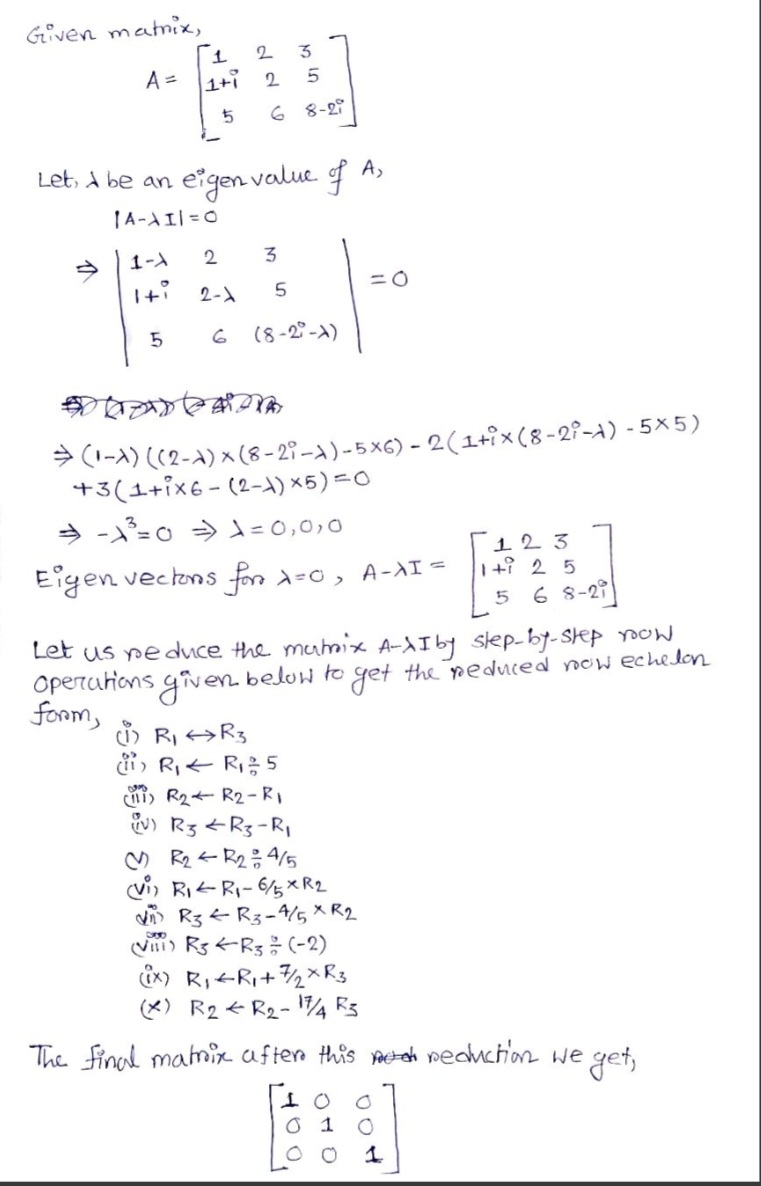 Given matrix,
A = [1 2 3
1+i 2 5
5 6 8-2i]
Let, λ be an eigenvalue of A,
|A-λI|=0
⇒ |1-λ 2 3
1+i 2-λ 5
5 6 (8-2i-λ)| = 0
⇒ (1-λ)((2-λ)×(8-2i-λ)-5×6) - 2(1+i×(8-2i-λ) - 5×5)
+3(1+i×6 - (2-λ)×5)=0
⇒ -λ³=0 ⇒ λ=0,0,0
Eigen vectors for λ=0, A-λI = [1 2 3
1+i 2 5
5 6 8-2i]
Let us reduce the matrix A-λI by step-by-step row
operations given below to get the reduced row echelon
form,
(i) R₁ ↔ R₃
(ii) R₁ ← R₁ ÷ 5
(iii) R₂ ← R₂ - R₁
(iv) R₃ ← R₃ - R₁
(v) R₂ ← R₂ ÷ 4/5
(vi) R₁ ← R₁ - 6/5 × R₂
(vii) R₃ ← R₃ - 4/5 × R₂
(viii) R₃ ← R₃ ÷ (-2)
(ix) R₁ ← R₁ + 7/2 × R₃
(x) R₂ ← R₂ - 17/4 R₃
The final matrix after this reduction we get,
[1 0 0
0 1 0
0 0 1]